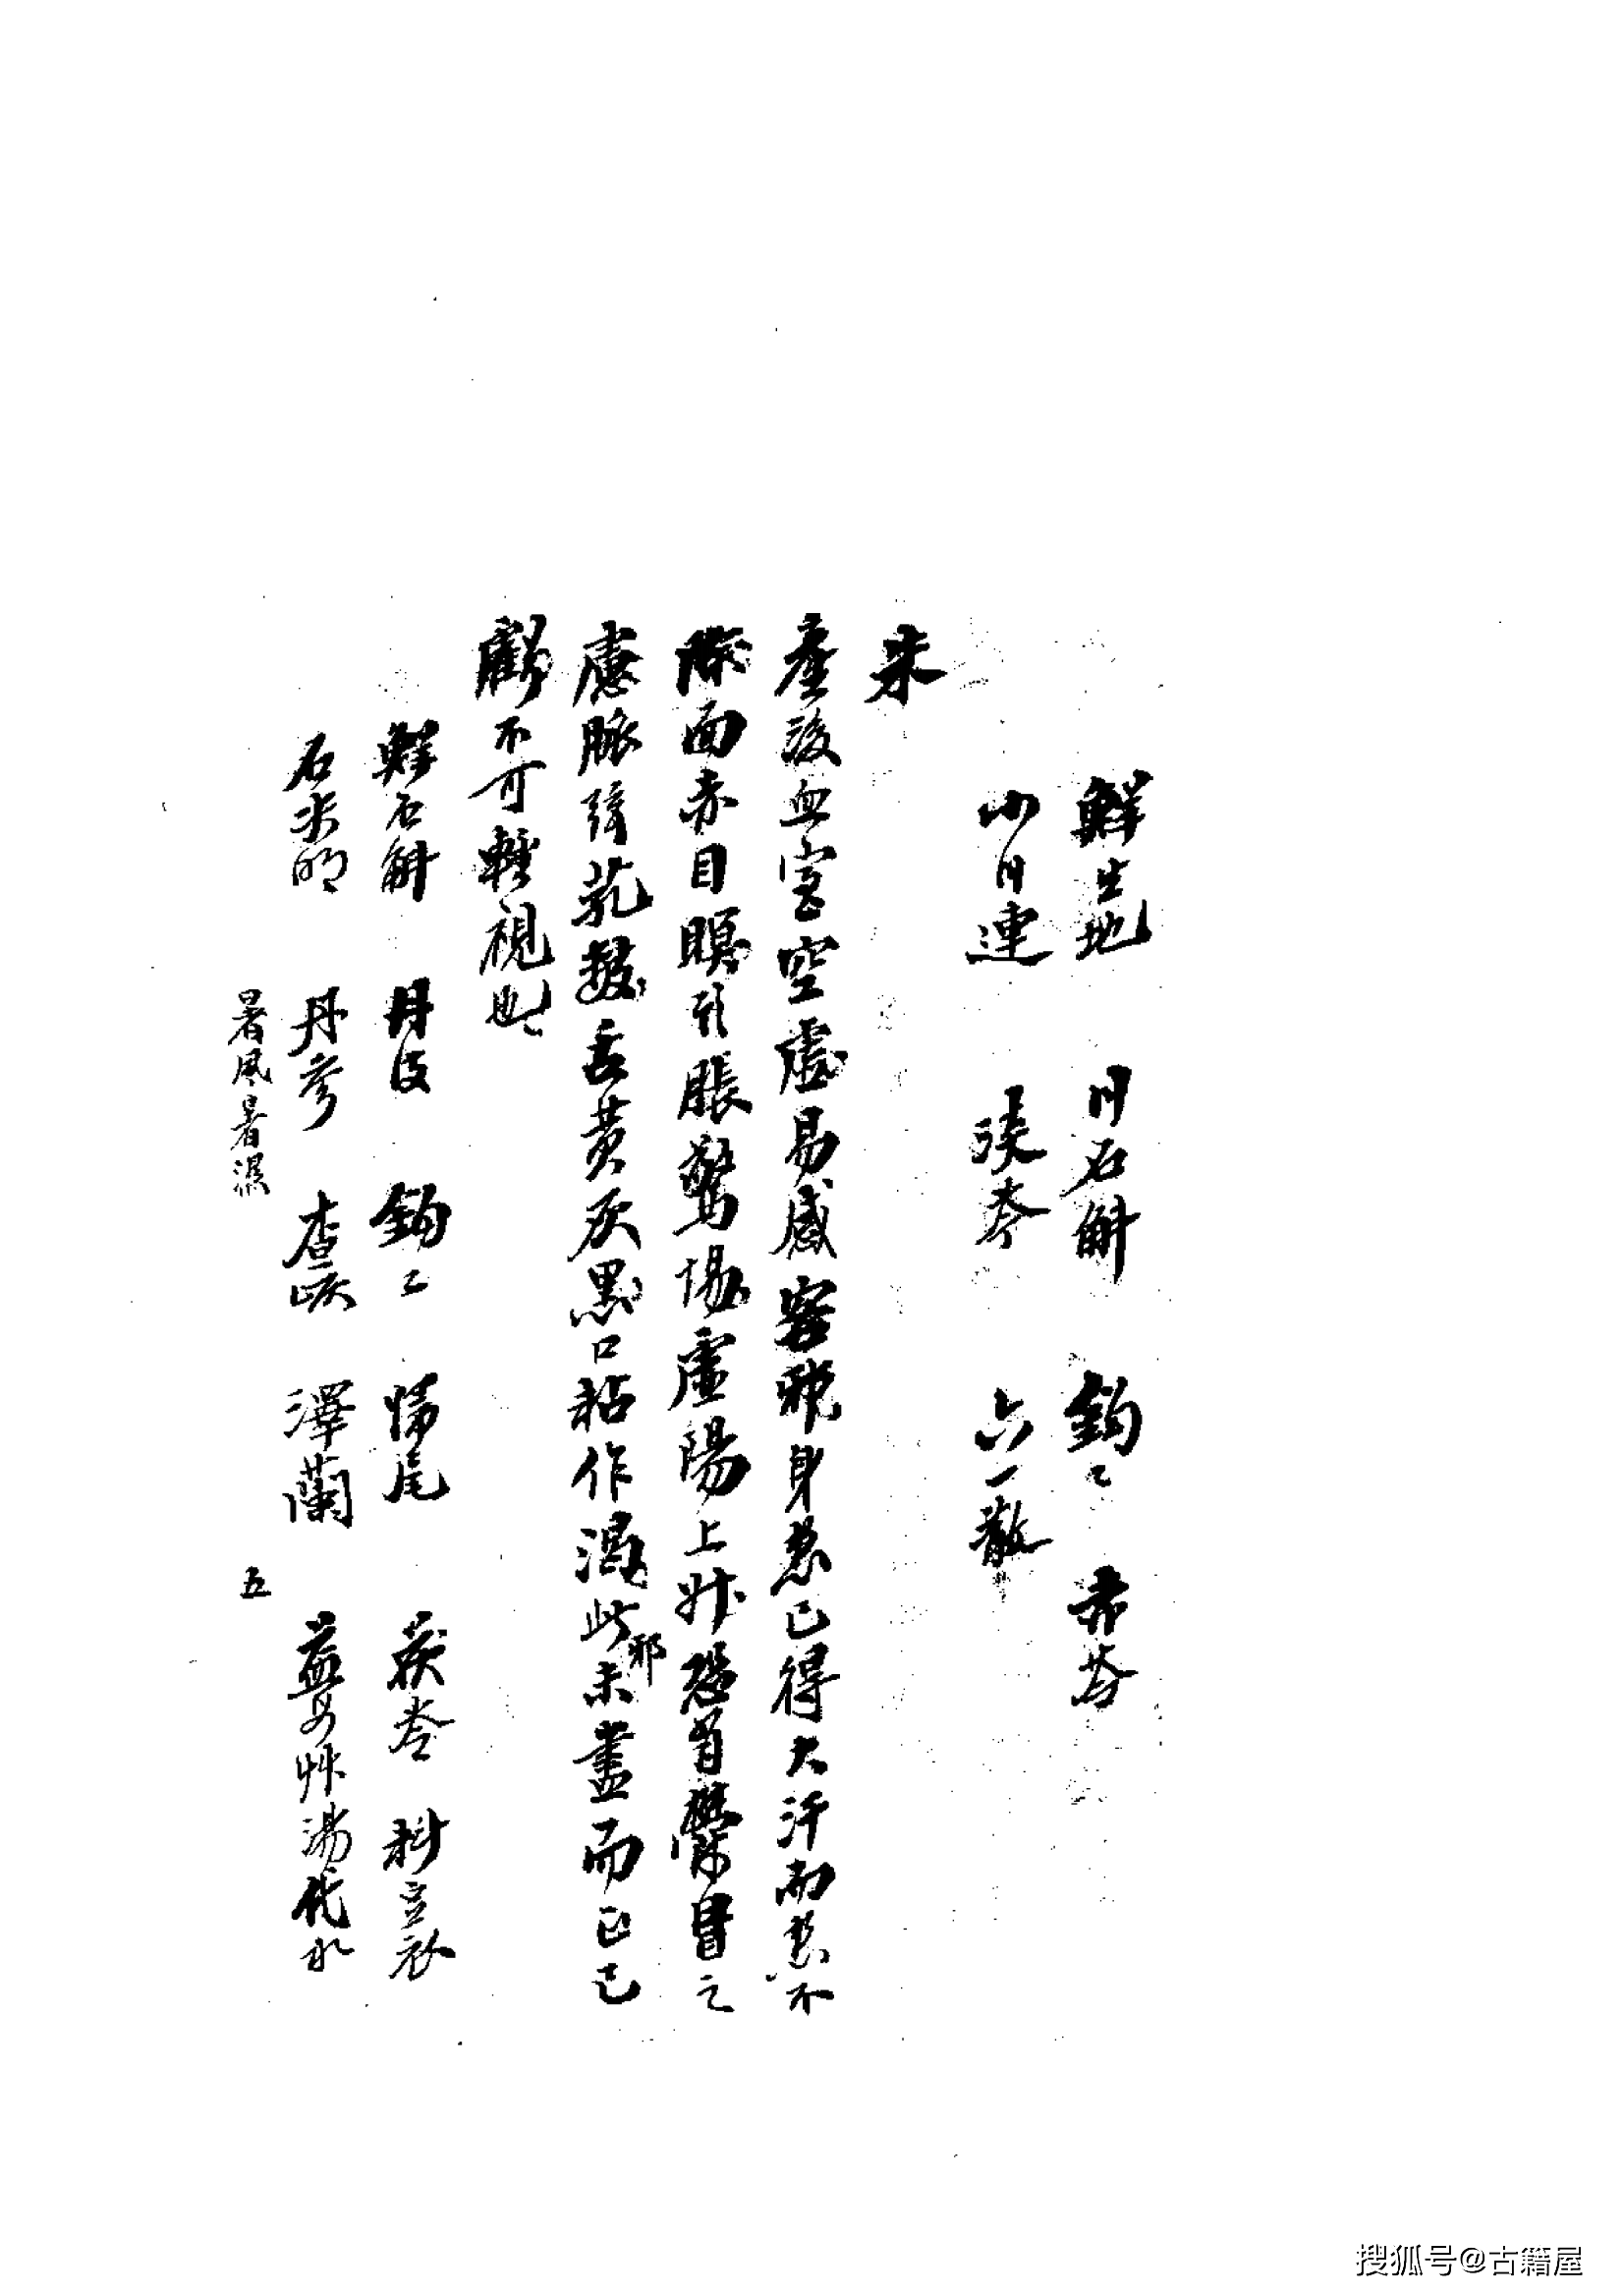 鮮生地 川石斛 鈎〻 赤芍
小川連 茯苓 六一散
朱
產後血室空虛易感客邪身熱已得大汗而熱不
除面赤目瞑形脹驚惕虛陽上升恐有鬱冒之
慮脉弦芤數舌黃灰黑口粘作渴此邪未盡而正已
虧不可輕視也
鮮石斛 丹皮 鈎〻 歸尾 茯苓 料豆衣
石決明 丹參 查炭 澤蘭 益母艸湯代水
暑風暑濕 五
搜狐号@古籍屋